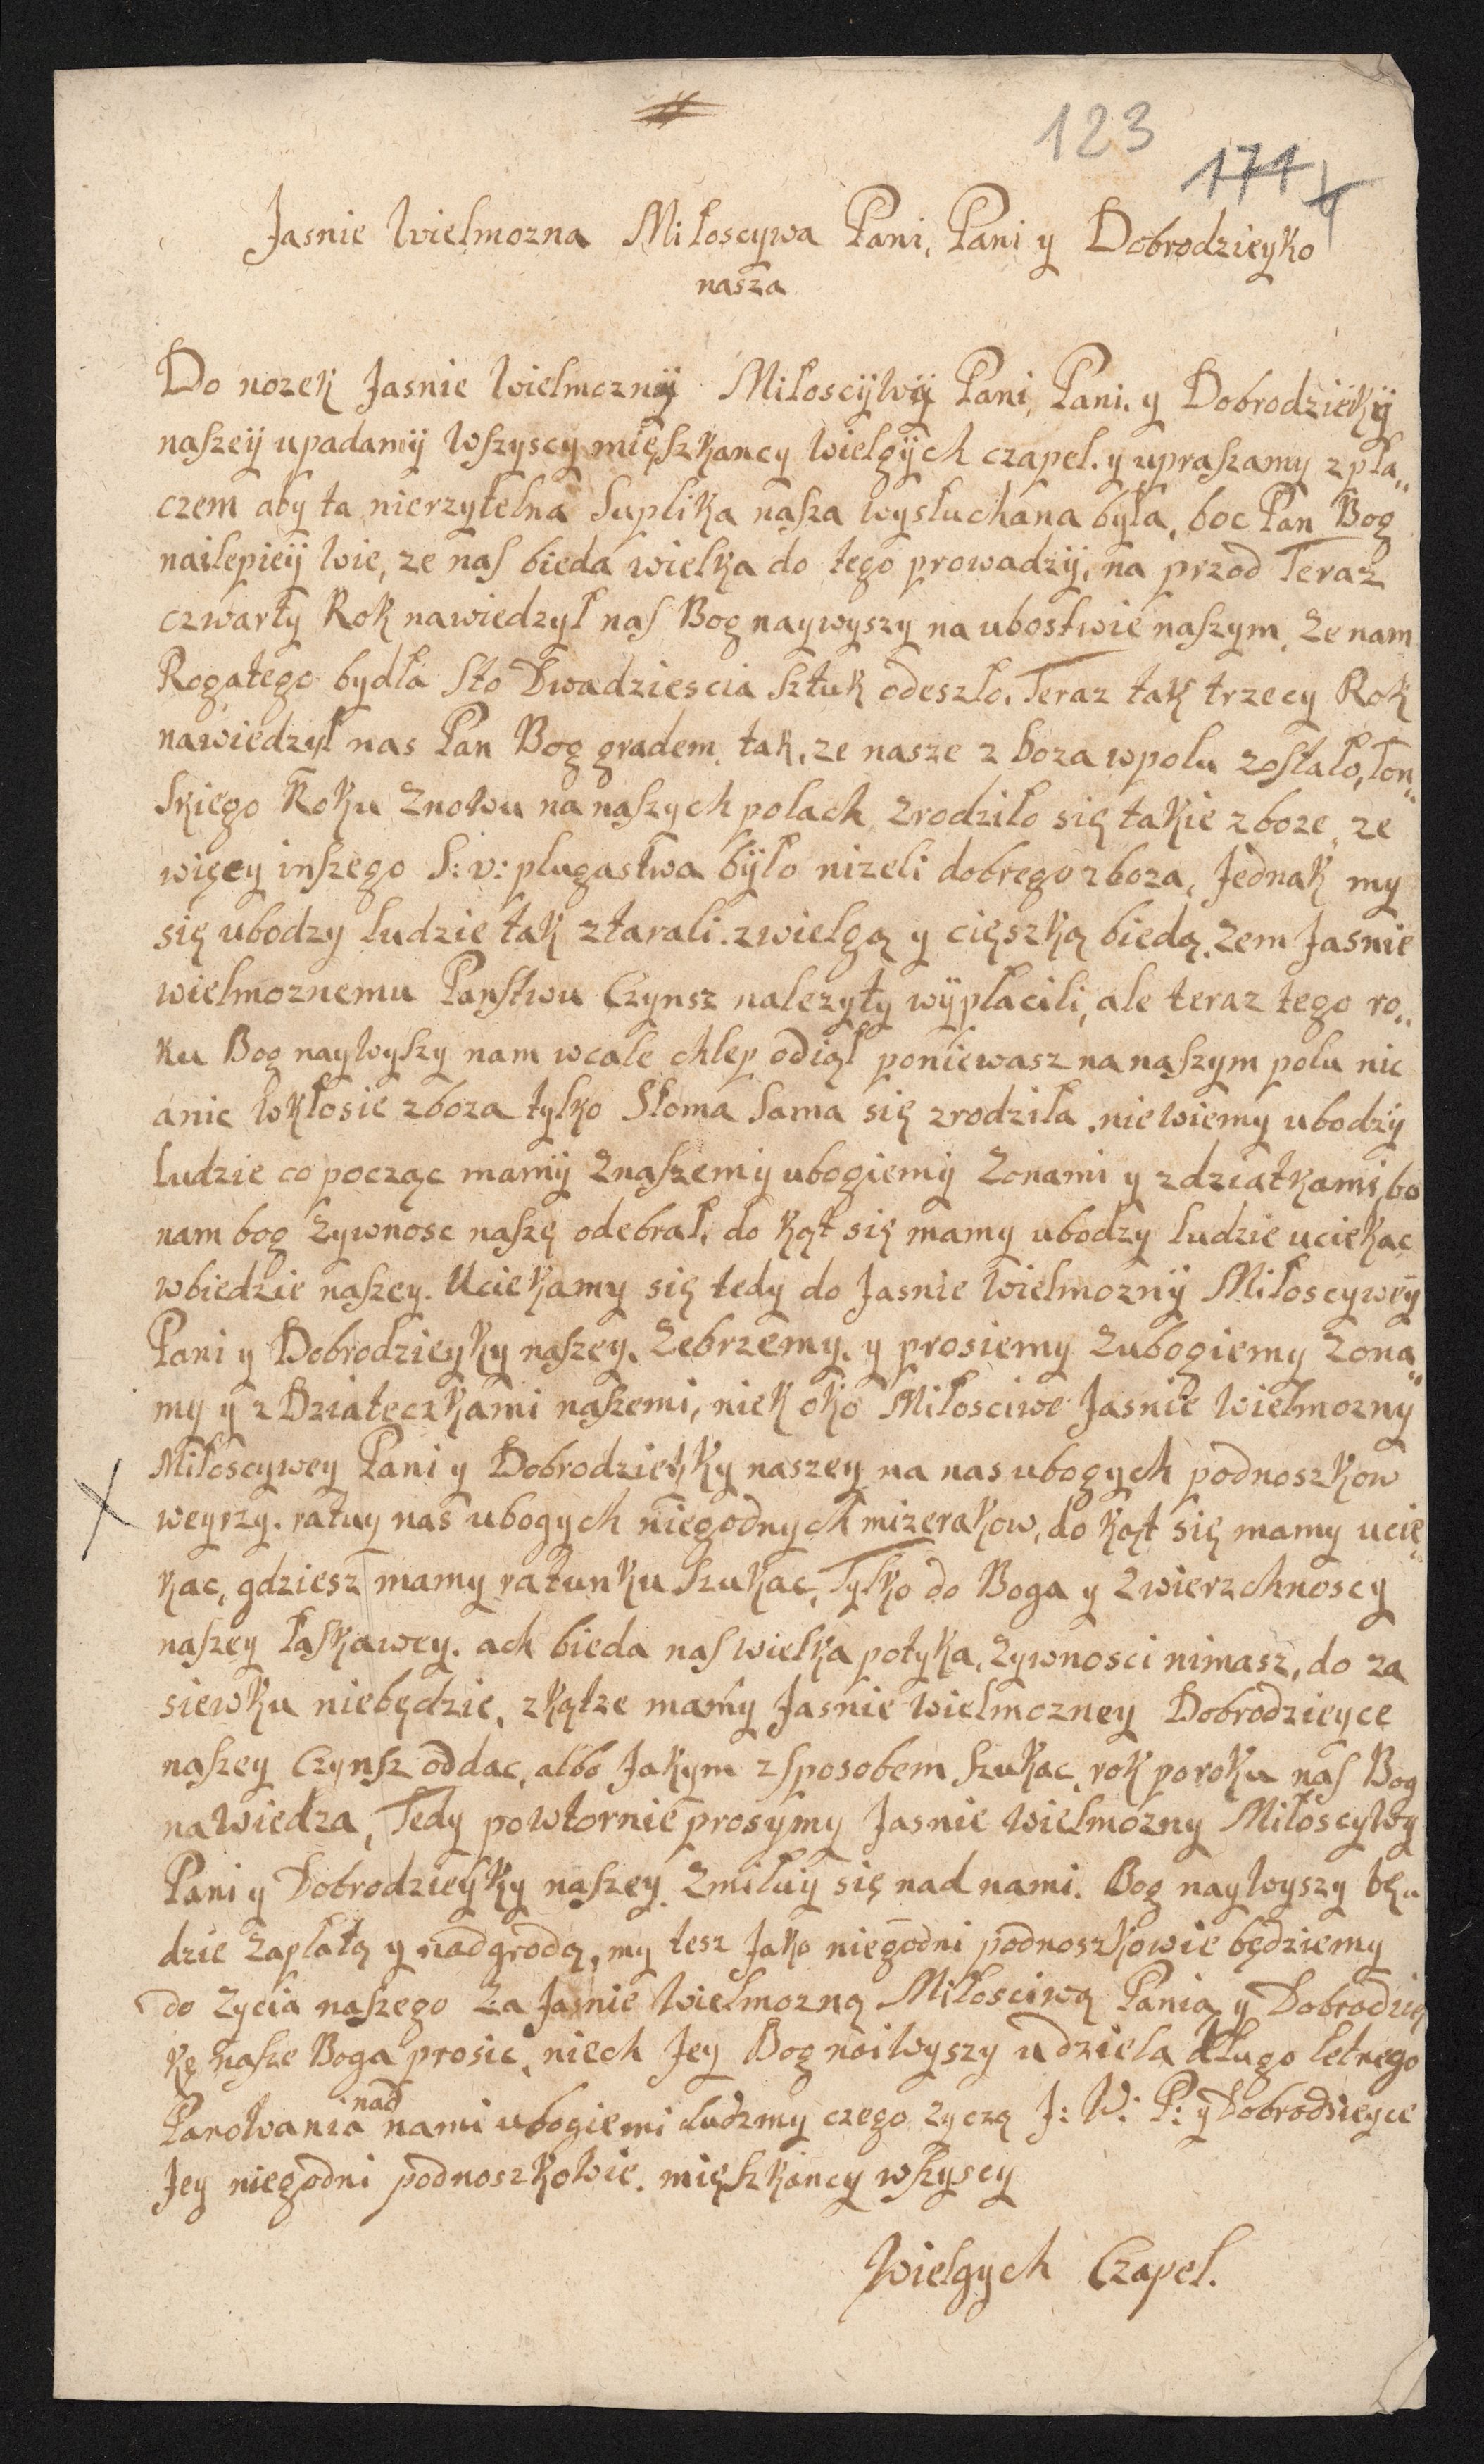 123
171
Jasnie Wielmozna Miłoscywa Pani, Pani y Dobrodzieyko
nasza
Do nozek Jasnie Wielmoznÿ Miłoscÿwÿ Pani, Pani. y Dobrodzieÿkÿ
naszeÿ upadamÿ wszyscy mięszkancy Wielgÿch czapel. y upraszamy z pła„
czem aby ta nierzytelna Suplika nasza wysłuchana była, boc Pan Bog
nailepieÿ wie, ze nas bieda wielka do tego prowadzÿ, na przod Teraz
czwarty Rok nawiedzył nas Bog naywyszy na ubostwie naszym, ze nam
Rogatego bydła Sto Dwadziescia Sztuk odeszło. Teraz tak trzecy Rok
nawiedzył nas Pan Bog gradem, tak, ze nasze zboza wpolu zostało, Łon„
skiego Roku znowu na naszych polach zrodziło się takie zboze, ze
więcy inszego S: v: plugastwa bÿło nizeli dobrego zboza, Jednak my
się ubodzy ludzie tak ztarali. zwielgą y cięszką biedą. zem Jasnie
wielmoznemu Panstwu Czynsz nalezyty wÿpłacili, ale teraz tego ro„
ku Bog naywyszy nam wcale chlep odiął poniewasz na naszym polu nic
anic wkłosie zboza tylko Słoma Sama się zrodziła. niewiemy ubodzÿ
ludzie co począc mamÿ znaszemÿ ubogiemÿ zonami y zdziatkami, bo
nam bog zywnosc naszę odebrał, do kąt się mamy ubodzy ludzie uciekac
wbiedzie naszey. Uciekamy się tedy do Jasnie Wielmoznÿ Miłoscyweÿ
Pani y Dobrodzieyky naszey. Zebrzemy. y prosiemy zubogiemy zona„
my y z Dziateczkami naszemi, niek oko Miłosciwe Jasnie Wielmozny
Miłoscywey Pani y Dobrodzieyky naszey na nas ubogych podnoszkow
weyrzy. ratuy nas ubogych niegodnych mizerakow, do kąt się mamy ucie„
kac, gdziesz mamy ratunku Szukac, Tylko do Boga y zwierzchnoscy
naszey łaskawey. ach bieda nas wielka potyka, zywnosci nimasz, do za
siewku niebędzie, zkątze mamy Jasnie wielmozney Dobrodzieyce
naszey Czynsz oddac, albo Jakym zsposobem Szukac, rok poroku nas Bog
nawiedza, Tedy powtornie prosymy Jasnie Wielmozny Miłoscywy
Pani y Dobrodzieyky naszey zmiłuÿ się nad nami. Bog naywyszy bę„
dzie zapłatą y nadgrodą, my tesz Jako niegodni podnoszkowie będziemy
do zycia naszego za Jasnie Wielmozną Miłosciwą Panią y Dobrodziey
kę nasze Boga prosic, niech Jey Bog noiwyszy udziela długo letnego
Panowania nad nami ubogiemi ludzmy czego zyczą J: W: P: y Dobrodzieyce
Jey niegodni podnoszkowie. mięszkancy wszyscy
Wielgych Czapel.